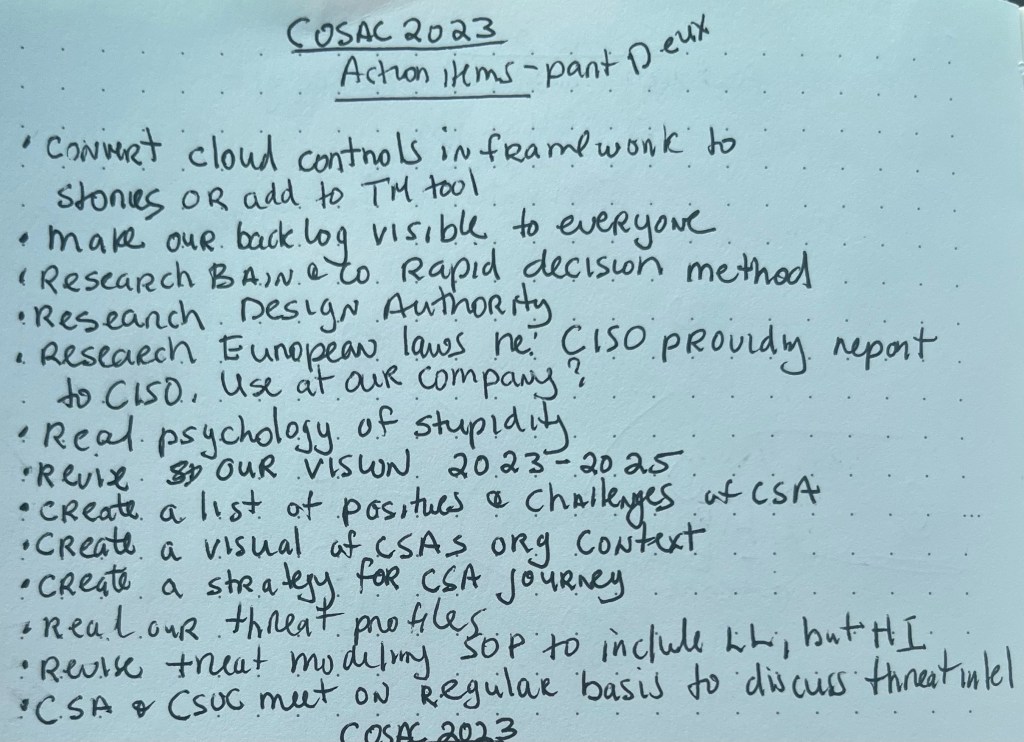 COSAC 2023
Action items - part Deux
• Convert cloud controls in framework to
stories OR add to TM tool
• make our backlog visible to everyone
• Research BAIN & Co. Rapid decision method
• Research Design Authority
• Research European laws re: CISO providing report
to CISO. Use at our company?
• Read psychology of stupidity
• Revise our vision 2023-2025
• Create a list of positives & challenges of CSA
• Create a visual of CSAs org context
• Create a strategy for CSA journey
• Read our threat profiles
• Revise treat modeling SOP to include LL, but HI
• CSA & CSOC meet on regular basis to discuss threat intel
COSAC 2023